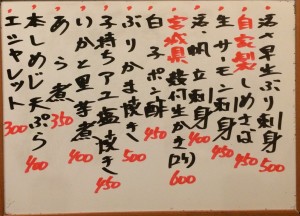 活〆早生ぶり刺身 500
自家製しめさば 450
生サーモン刺身 450
活帆立刺身 400
宮城県殻付生かき(2ヶ) 600
白子ポン酢 450
ぶりかま焼き 500
子持ちアユ塩焼き 450
いかと里芋煮 400
あら煮 350
本しめじ天ぷら 400
エシャレット 300